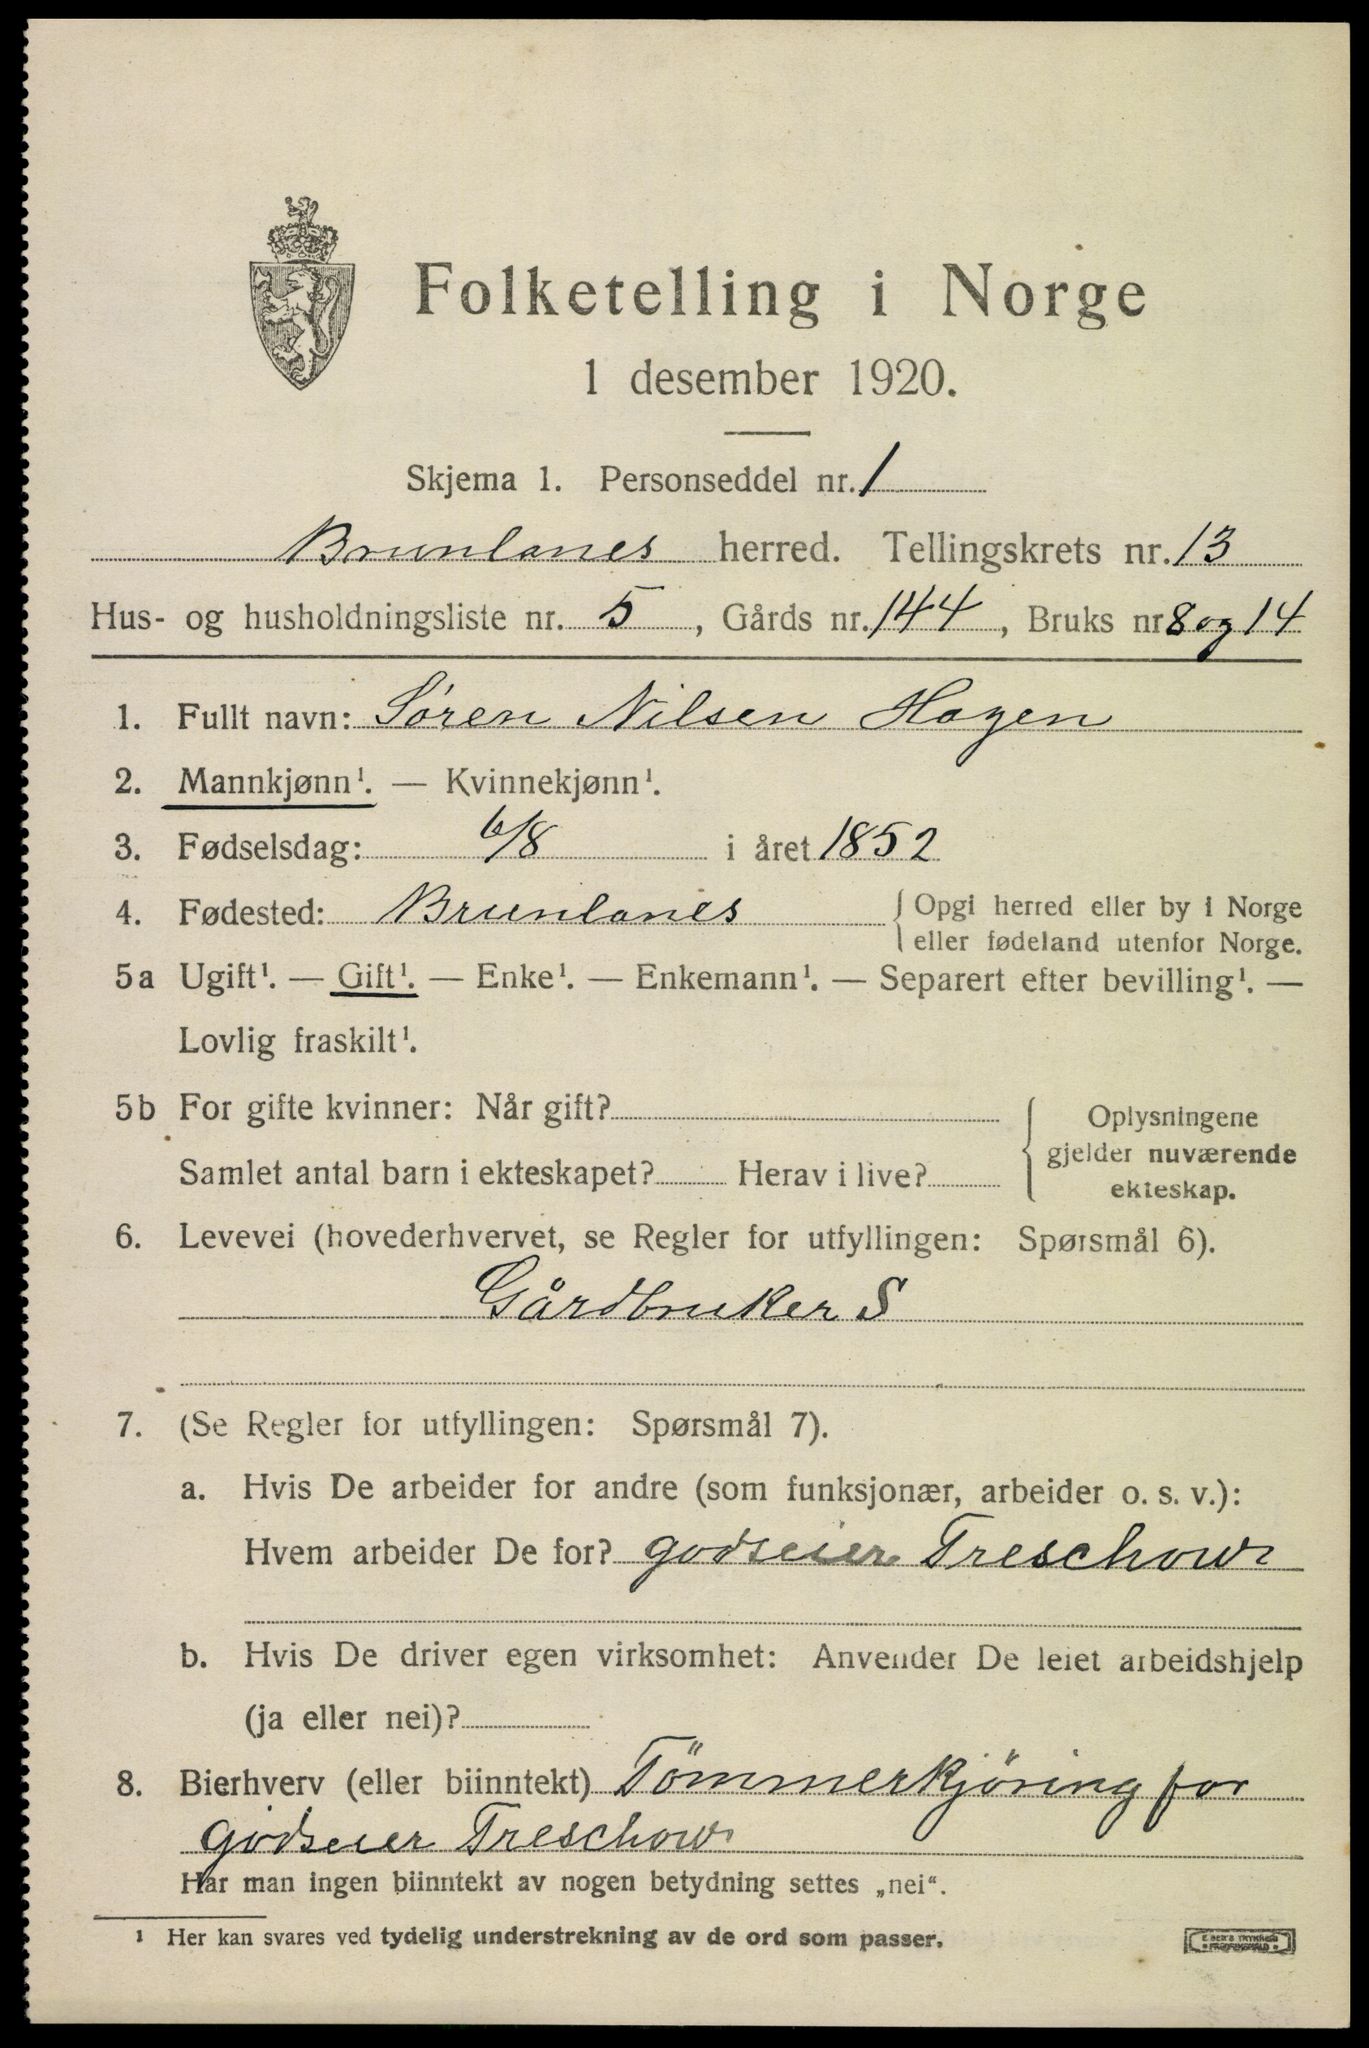 Folketelling i Norge
1 desember 1920.
Skjema 1. Personseddel nr. 1
Brunlanes herred. Tellingskrets nr. 13
Hus- og husholdningsliste nr. 5, Gårds nr. 144, Bruks nr 8 og 14
1. Fullt navn: Søren Nilsen Hagen
2. Mannkjønn¹. — Kvinnekjønn¹.
3. Fødselsdag: 6/8 i året 1852
4. Fødested: Brunlanes { Opgi herred eller by i Norge
eller fødeland utenfor Norge.
5a Ugift¹. — Gift¹. — Enke¹. — Enkemann¹. — Separert efter bevilling¹. —
Lovlig fraskilt¹.
5b For gifte kvinner: Når gift?
Samlet antal barn i ekteskapet? Herav i live?
{ Oplysningene
gjelder nuværende
ekteskap.
6. Levevei (hovederhvervet, se Regler for utfyllingen: Spørsmål 6).
Gårdbruker S
7. (Se Regler for utfyllingen: Spørsmål 7).
a. Hvis De arbeider for andre (som funksjonær, arbeider o. s. v.):
Hvem arbeider De for? godseier Treschow
b. Hvis De driver egen virksomhet: Anvender De leiet arbeidshjelp
(ja eller nei)?
8. Bierhverv (eller biinntekt) Tömmerkjöring for
godseier Treschow
Har man ingen biinntekt av nogen betydning settes „nei“.
¹ Her kan svares ved tydelig understrekning av de ord som passer.